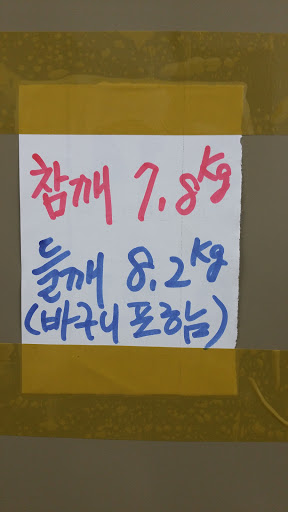 참깨 7.8kg
들깨 8.2kg
(바구니 포함)